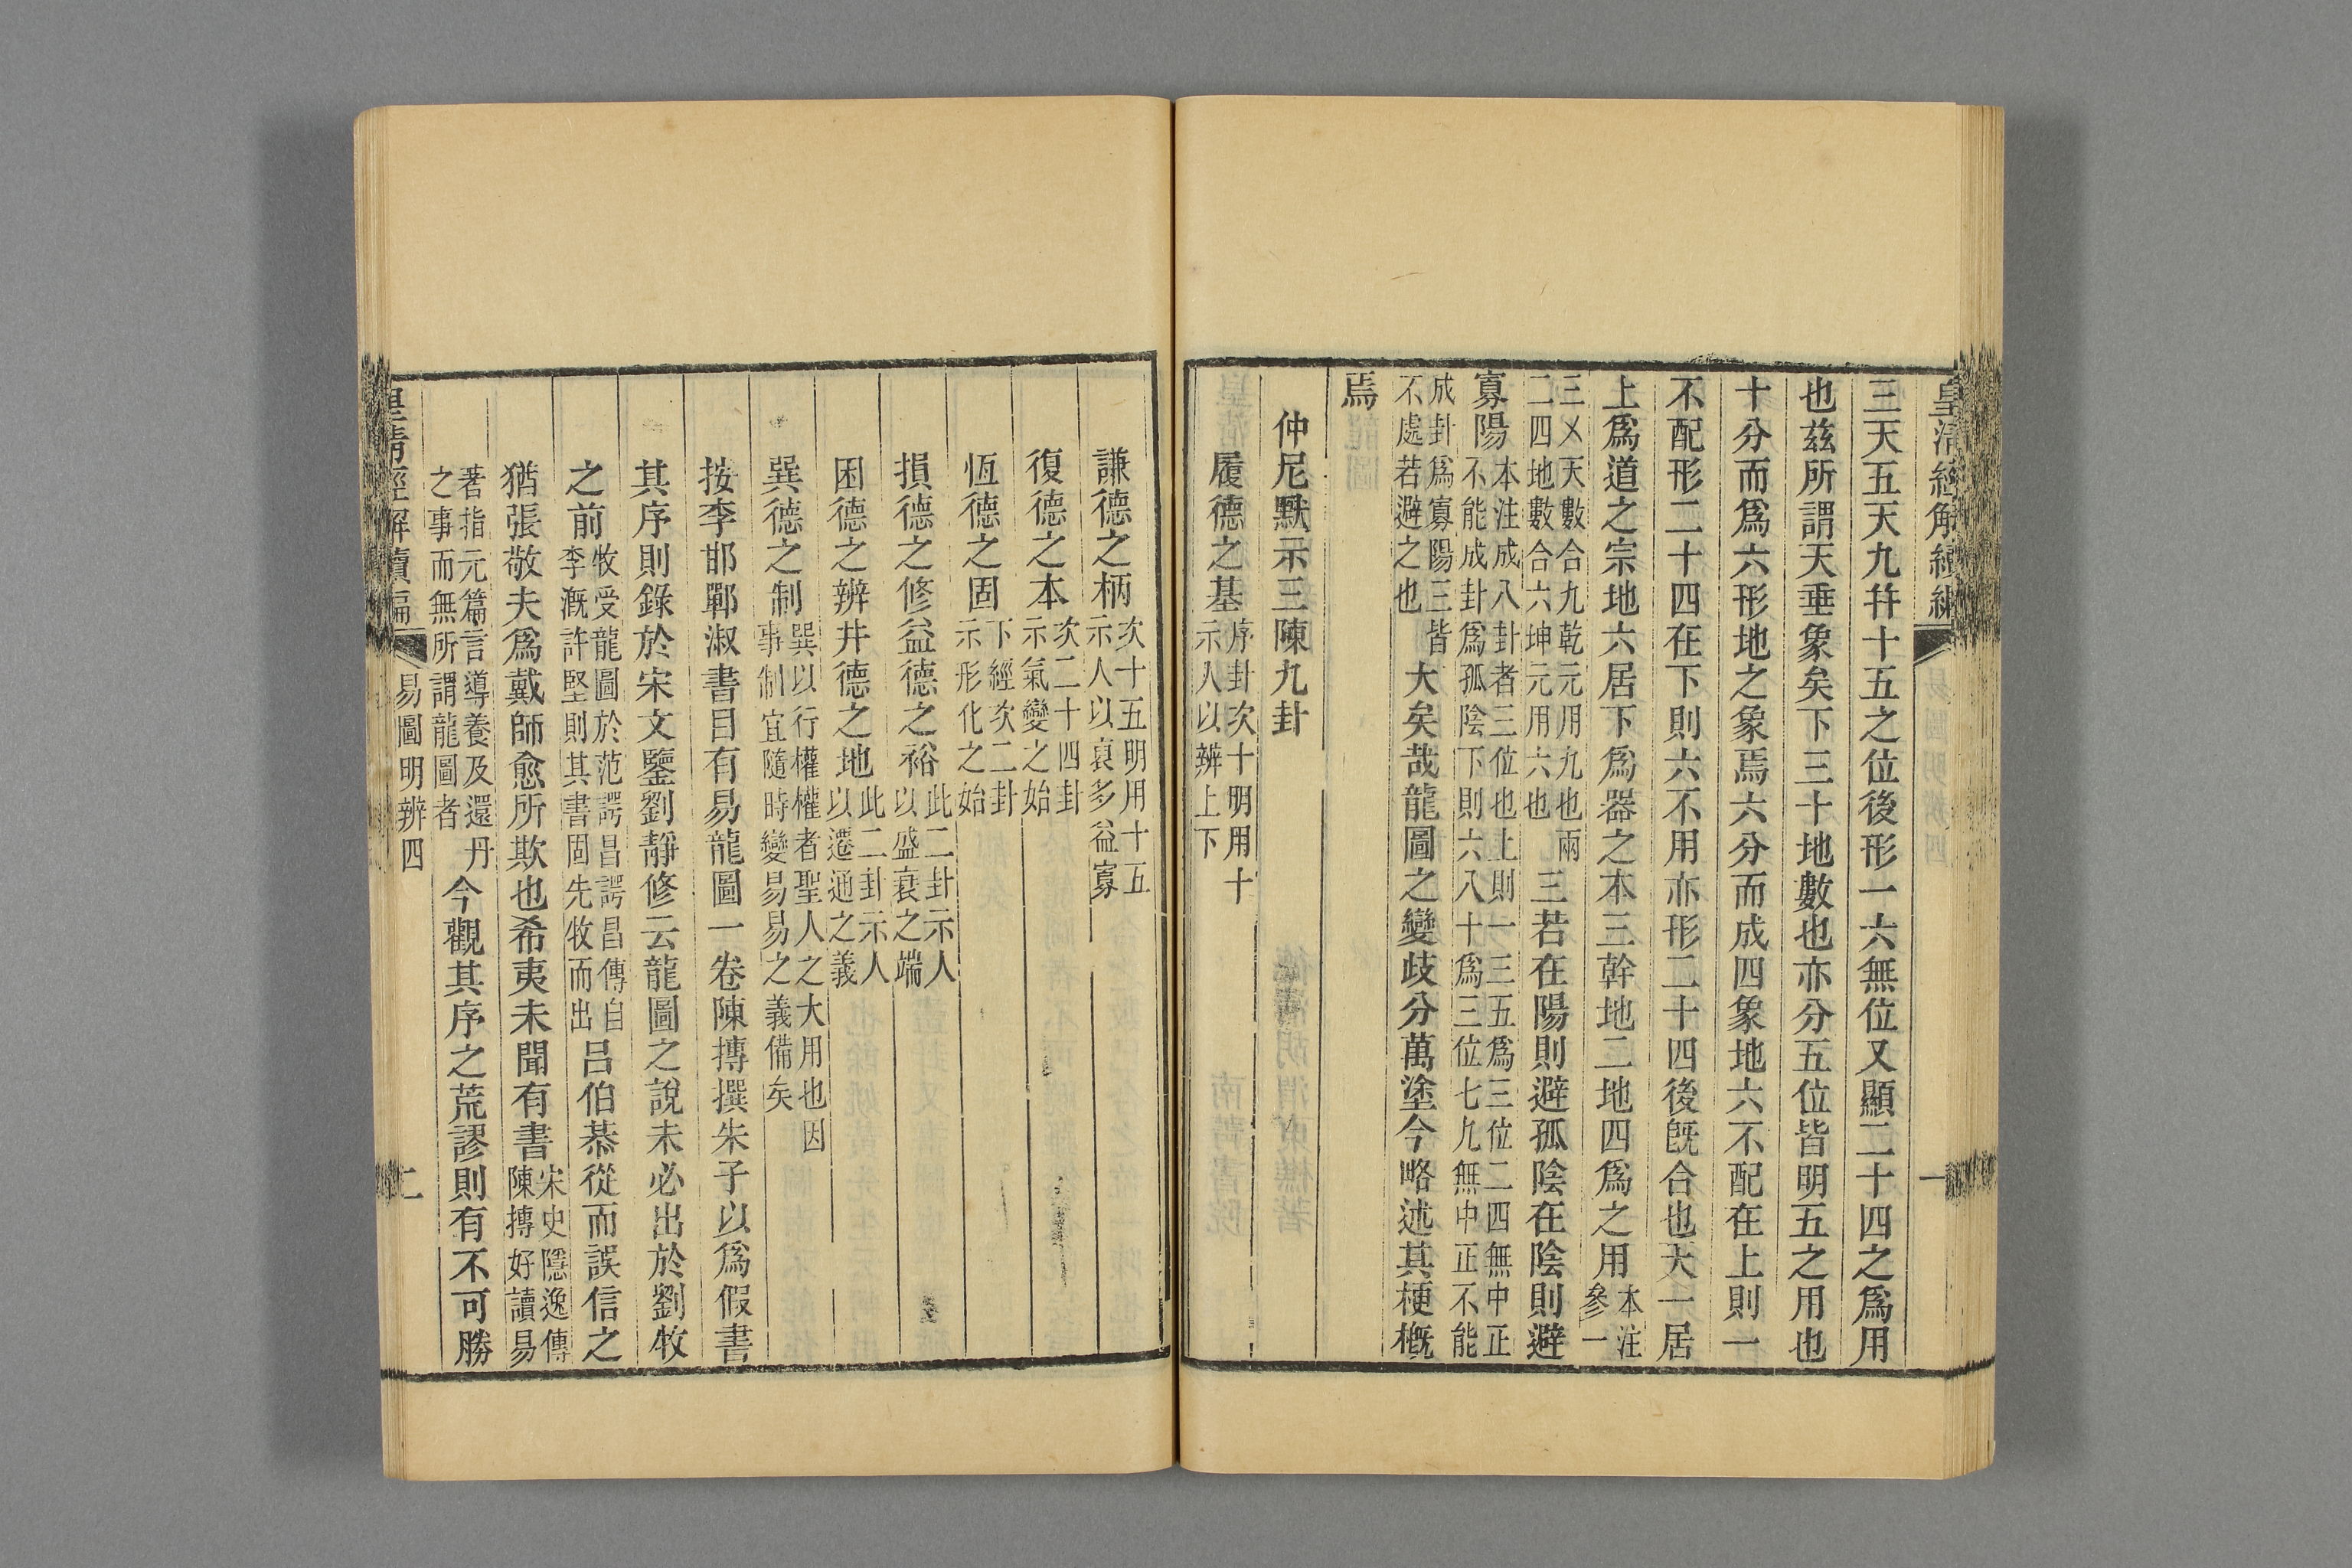 皇清經解續編
一
三天五天九幷十五之位後形一六無位又顯二十四之爲用
也茲所謂天垂象矣下三十地數也亦分五位皆明五之用也
十分而爲六形地之象焉六分而成四象地六不配在上則一
不配形二十四在下則六不用亦形二十四後旣合也天一居
上爲道之宗地六居下爲器之本三幹地二地四爲之用本注參一
三㐅天數合九乾元用九也兩二四地數合六坤元用六也三若在陽則避孤陰在陰則避
寡陽本注成八卦者三位也上則一三五爲三位二四無中正不能成卦爲孤陰下則六八十爲三位七九無中正不能
成卦爲寡陽三皆不處若避之也大矣哉龍圖之變歧分萬塗今略述其梗概
焉
仲尼默示三陳九卦
履德之基序卦次十明用十示人以辨上下
謙德之柄次十五明用十五示人以裒多益寡
復德之本次二十四卦示氣變之始
恆德之固下經次二卦示形化之始
損德之修益德之裕此二卦示人以盛衰之端
困德之辨井德之地此二卦示人以遷通之義
巽德之制巽以行權權者聖人之大用也因事制宜隨時變易易之義備矣
按李邯鄲淑書目有易龍圖一卷陳摶撰朱子以爲假書
其序則錄於宋文鑒劉靜修云龍圖之說未必出於劉牧
之前牧受龍圖於范諤昌諤昌傳自李漑許堅則其書固先牧而出呂伯恭從而誤信之
猶張敬夫爲戴師愈所欺也希夷未聞有書宋史隱逸傳陳摶好讀易
著指元篇言導養及還丹之事而無所謂龍圖者今觀其序之荒謬則有不可勝
皇淸經解續編
易圖明辨四
二